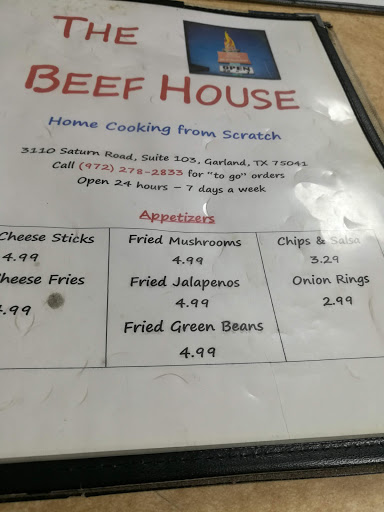 THE
BEEF HOUSE
OPEN
Home Cooking from Scratch
3110 Saturn Road, Suite 103, Garland, TX 75041
Call (972) 278-2833 for "to go" orders
Open 24 hours – 7 days a week
Appetizers
Cheese Sticks
4.99
Cheese Fries
.99
Fried Mushrooms
4.99
Fried Jalapenos
4.99
Fried Green Beans
4.99
Chips & Salsa
3.29
Onion Rings
2.99